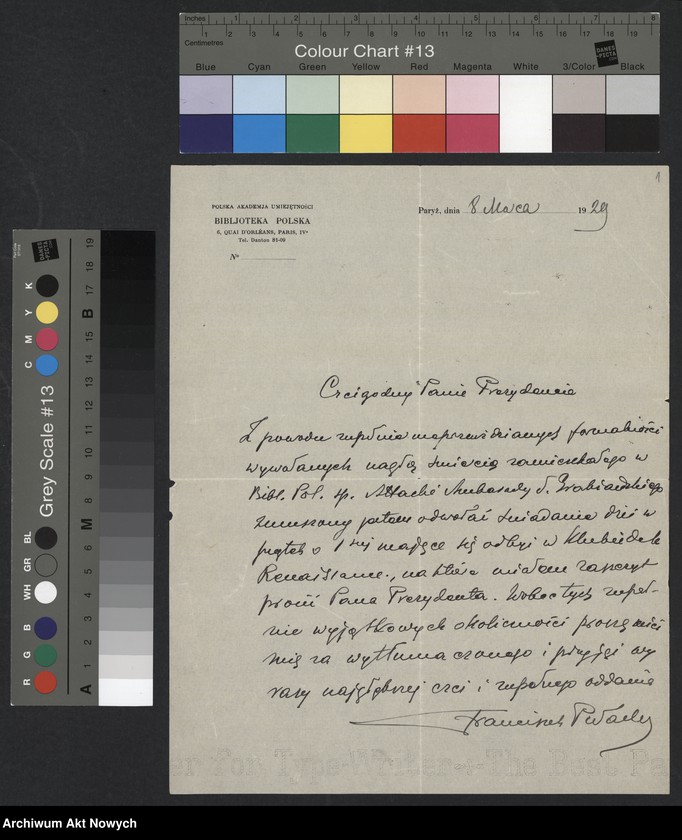 Inches 1 2 3 4 5 6 7 8
1 2 3 4 5 6 7 8 9 10 11 12 13 14 15 16 17 18 19
Centimetres
Colour Chart #13
DANES PICTA
Blue Cyan Green Yellow Red Magenta White 3/Color Black
Grey Scale #13
DANES PICTA
K Y M C
BL GR WH
B G R
A 1 2 3 4 5 6 M 8 9 10 11 12 13 14 15 B 17 18 19
1
POLSKA AKADEMJA UMIEJĘTNOŚCI
BIBLJOTEKA POLSKA
6, QUAI D'ORLÉANS, PARIS, IVe
Tel. Danton
Nº
Paryż, dnia 8 Marca 1929
Czcigodny Panie Prezydencie
Z powodu zupełnie nieprzewidzianych formalności
wywołanych nagłą śmiercią zamieszkałego w
Bibl. Pol. śp. Attaché Ambasady J. Grabiańskiego
zmuszony jestem odwołać śniadanie dziś w
piątek o 1 ej mające się odbyć w Klubie de la
Renaissance, na które miałem zaszczyt
prosić Pana Prezydenta. Wobec tych zupeł-
nie wyjątkowych okoliczności proszę mieć
mię za wytłumaczonego i przyjąć wy
razy najgłębszej czci i zupełnego oddania
Franciszek Pułaski
er for Type-Writer - The Best Pa
Archiwum Akt Nowych